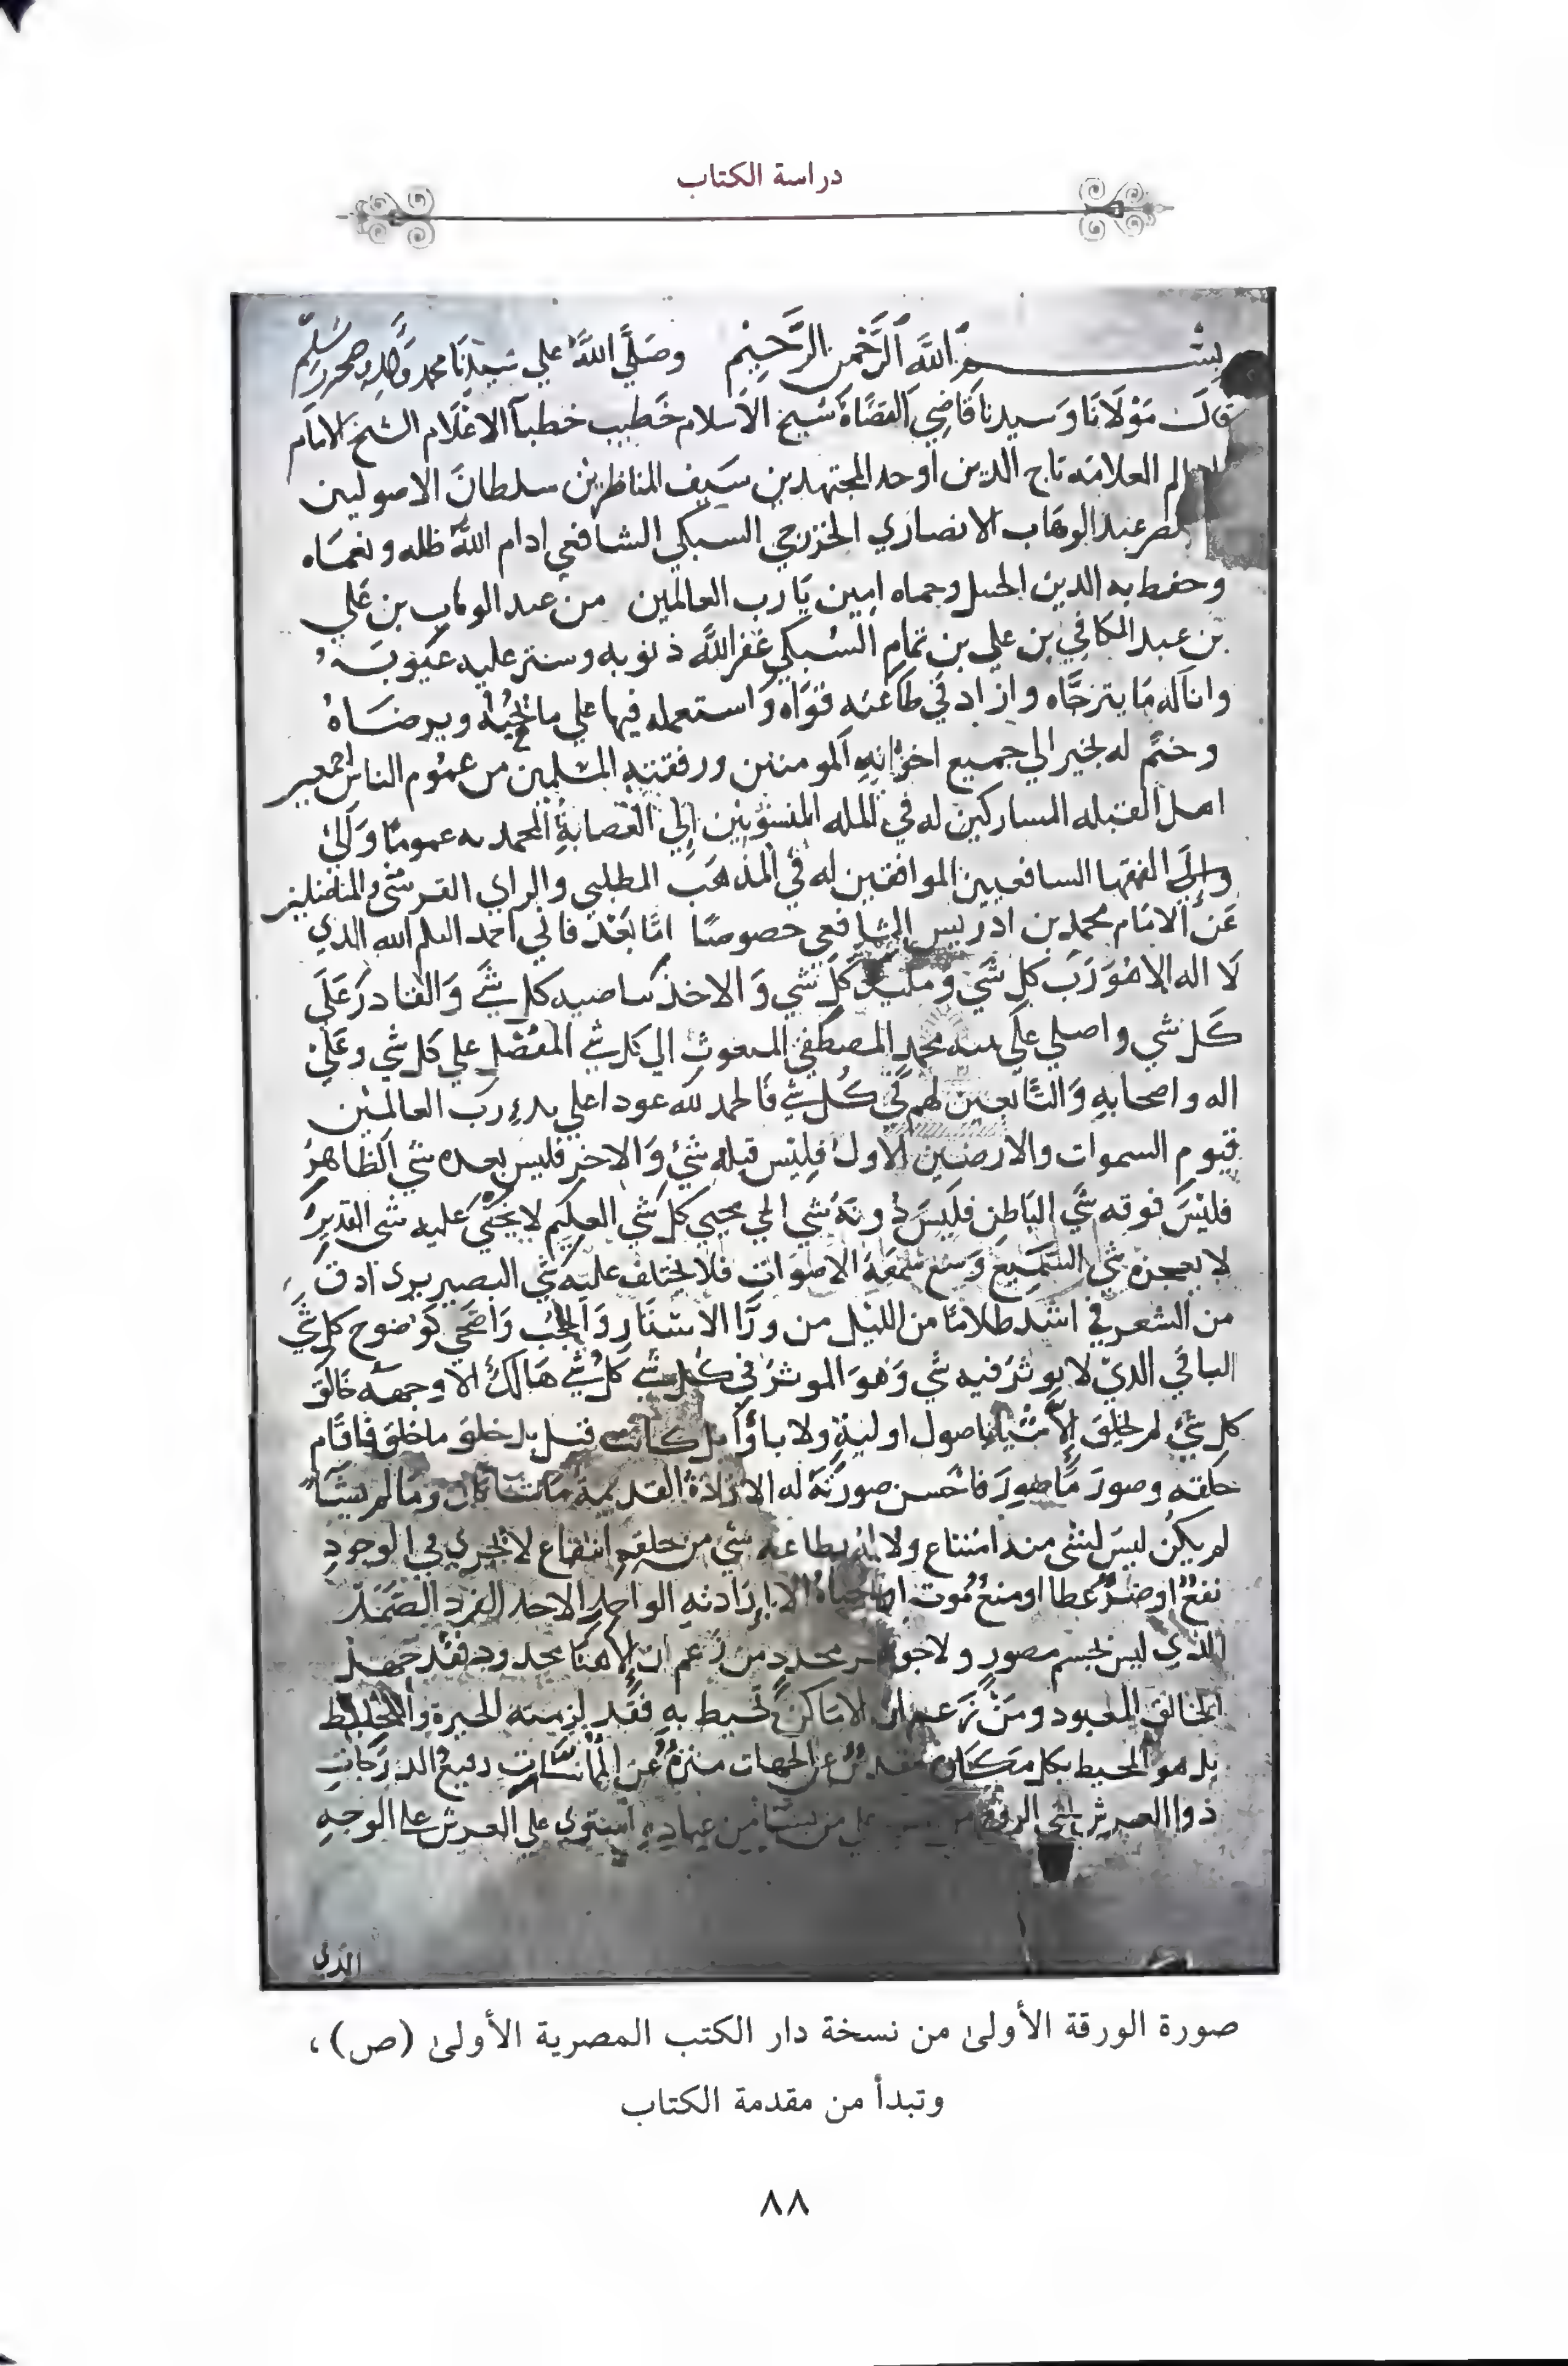 دراسة الكتاب
بسم الله الرحمن الرحيم وصلي الله علي سيدنا محمد واله وصحبه وسلم
قال مولانا وسيدنا قاضي القضاة شيخ الاسلام خطيب خطبآ الاعلام الشيخ الامام
العلامه تاج الدين اوحد المجتهدين سيف المناظرين سلطان الاصوليين
عبد الوهاب الانصاري الخزرجي السبكي الشافعي ادام الله ظله ونعماه
وحفظ به الدين وحماه امين يا رب العالمين من عبد الوهاب بن علي
بن عبد الكافي بن علي بن تمام السبكي غفر الله ذنوبه وستر عليه عيوبه
واناله ما يترجاه وازاد في طاعته قواه واستعمله فيها علي ما يحبه ويرضاه
وختم له بخير الي جميع اخوانه المومنين ورفقته المسلمين من عموم الناس اجمعين
اهل القبله المساركين له في المله المنسوبين إلي العصابة المحمديه عموما
وإلي الفقها السافعيين الموافقين له في المذهب المطلبي والراي القرشي
عن الامام محمد بن ادريس الشافعي خصوصا امّا بعد فاني احمد اليكم الله الذي
لا اله الا هو رب كل شي ومليك كل شي والاخذ بناصيه كل شي والقادر علي
كل شي واصلي علي نبيه محمد المصطفي المبعوث الي كل شي المفضل علي كل شي وعلي
اله واصحابه والتابعين لهم في كل شي فالحمد لله عودا علي بدء رب العالمين
قيوم السموات والارضين الاول فليس قبله شي والاخر فليس بعده شي الظاهر
فليس فوقه شي الباطن فليس دونه شي الحي محيي كل شي العليم لا يخفي عليه شي القدير
لا يعجزه شي السميع وسع سمعه الاصوات فلا يختلف عليه شي البصير يري ادق
من الشعر في اشد ظلاما من الليل من ورآ الاستار والحجب واضحي كوضوح كل شي
الباقي الذي لا يوثر فيه شي وهو الموثر في كل شي كل شي هالك الا وجهه خالق
كل شي لم يخلق الاشيا باصول اولية ولا بل خلق ما خلق فاقام
خلقه وصور ما صور فاحسن صورته له الارادة القديمة ما شا كان وما لم يشأ
لم يكن ليس لشي منه امتناع ولا له بطاعة شي من خلقه انتفاع لا يجري في الوجود
نفع او ضر عطا او منع موت او حياة الا بإرادته الواحد الاحد الفرد الصمد
الذي ليس بجسم مصور ولا جوهر محدد من زعم ان إلاهنا محدود فقد جهل
الخالق المعبود ومن زعم ان الاماكن تحيط به فقد لزمته الحيرة والتخليط
بل هو المحيط بكل مكان مقدس عن الجهات منزه عن رفيع الدرجات
ذوا العرش الروح علي من يشا من عباده استوي علي العرش علي الوجه
الذي
صورة الورقة الأولىٰ من نسخة دار الكتب المصرية الأولىٰ (ص)،
وتبدأ من مقدمة الكتاب
٨٨